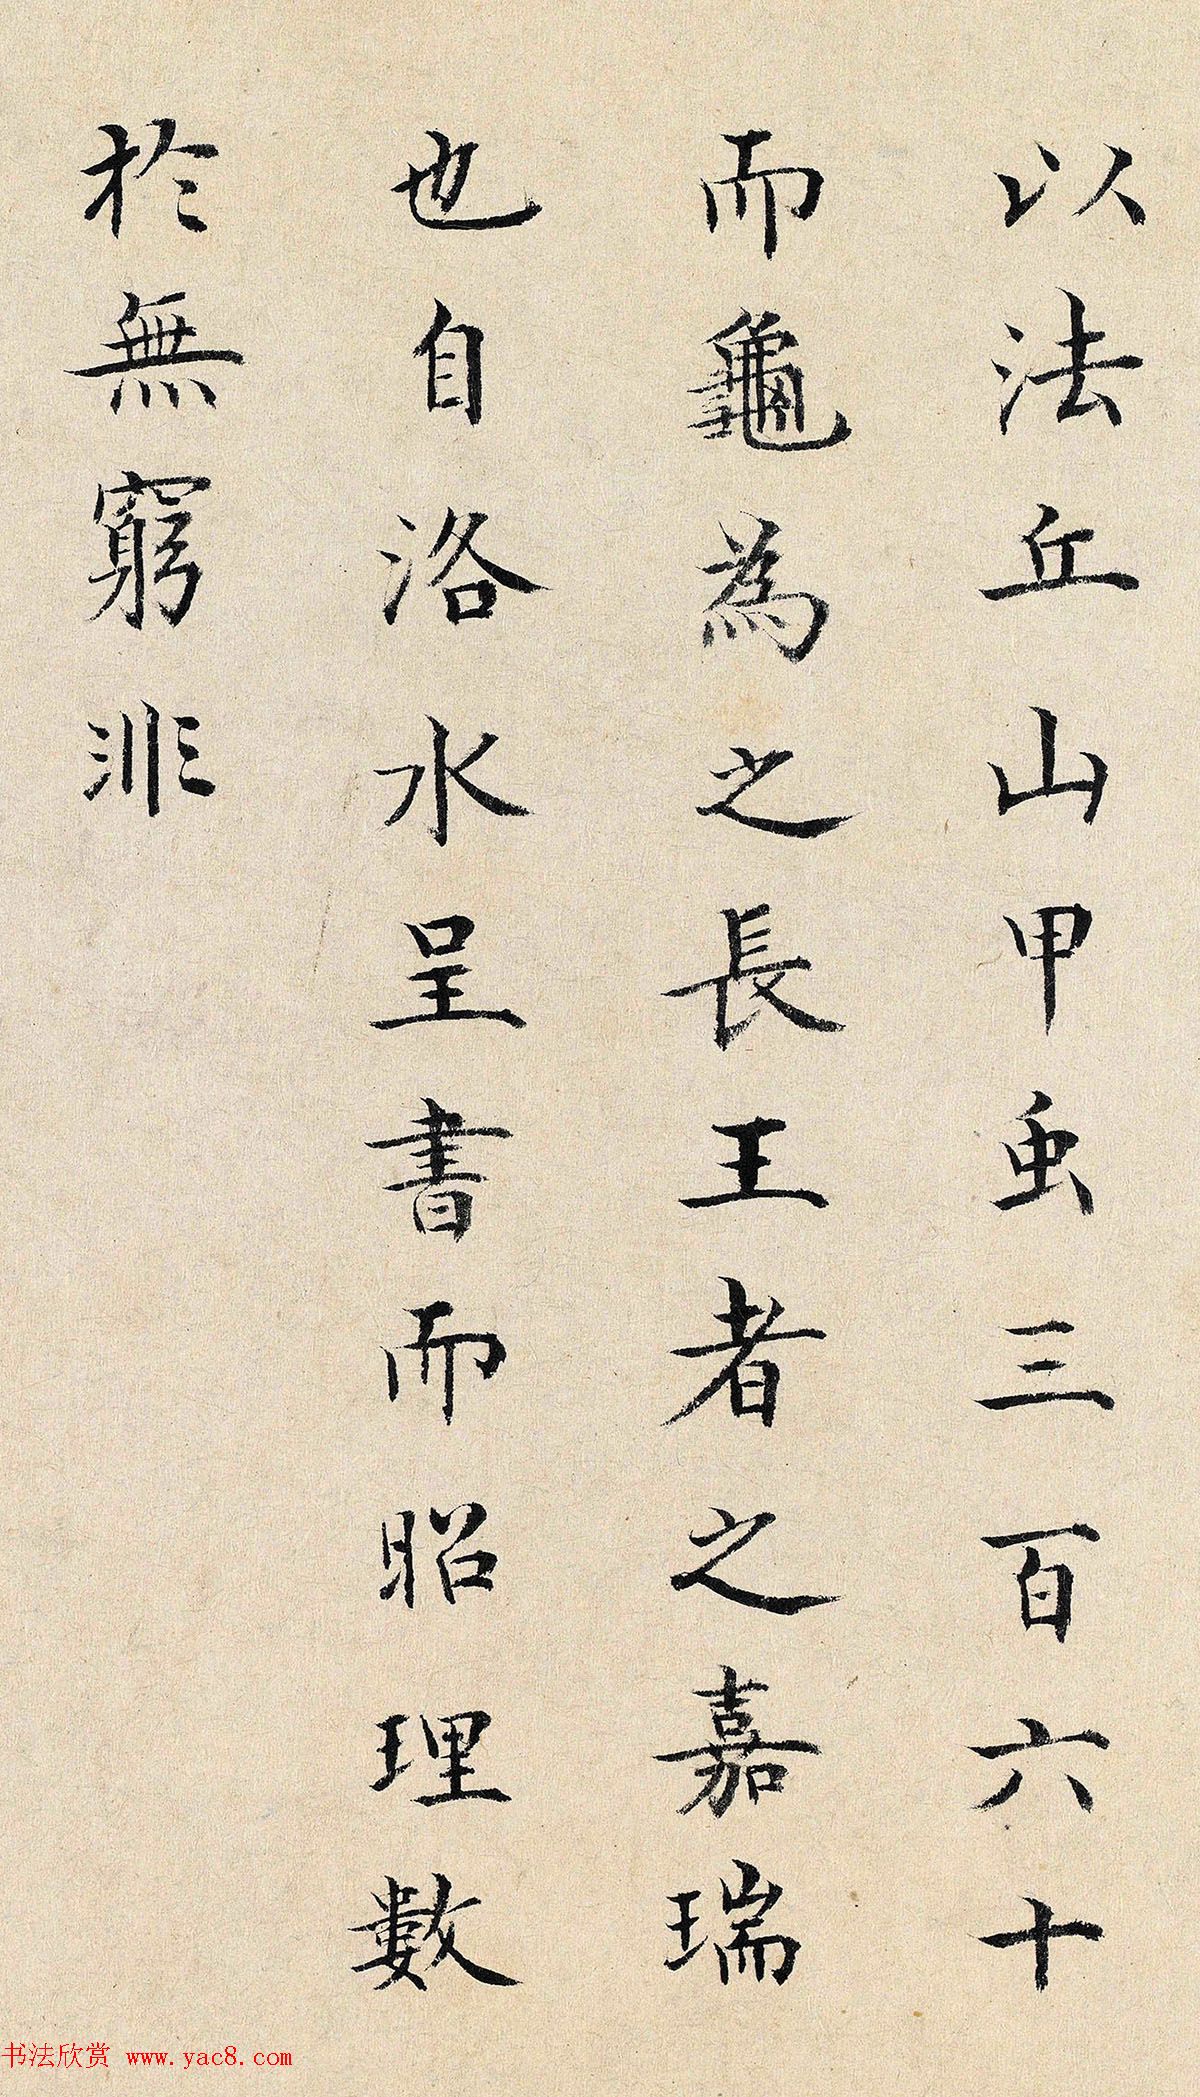 以法丘山甲虫三百六十
而龜為之長王者之嘉瑞
也自洛水呈書而昭理數
於無窮非
书法欣赏 www.yac8.com